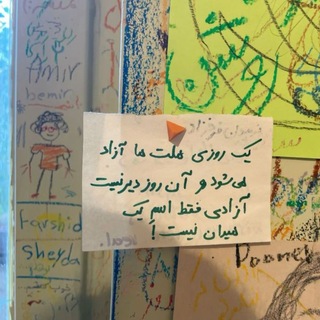 Amir
bemir
Farshid
Sheyda
یک روزی ملت ما آزاد
می‌شود و آن روز دیر نیست
آزادی فقط اسم یک
میدان نیست!